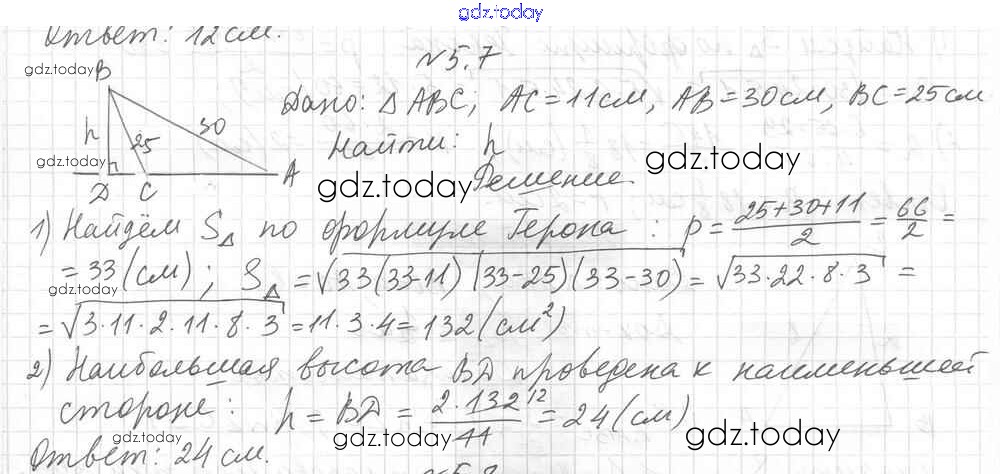 gdz.today
Ответ: 12 см.
№5.7
gdz.today
B
Дано: △ABC, AC=11см, AB=30см, BC=25см
h 25 30
Найти: h
gdz.today
gdz.today
A
D C
gdz.today
Решение.
1) Найдём S△ по формуле Герона: p = (25+30+11)/2 = 66/2 =
= 33 (см); S△ = √(33(33-11)(33-25)(33-30)) = √(33·22·8·3) =
gdz.today
= √(3·11·2·11·8·3) = 11·3·4 = 132 (см²)
2) Наибольшая высота BD проведена к наименьшей
стороне: h = BD = (2·132 12)/11 = 24 (см)
gdz.today
gdz.today
gdz.today
Ответ: 24 см.
№5.8